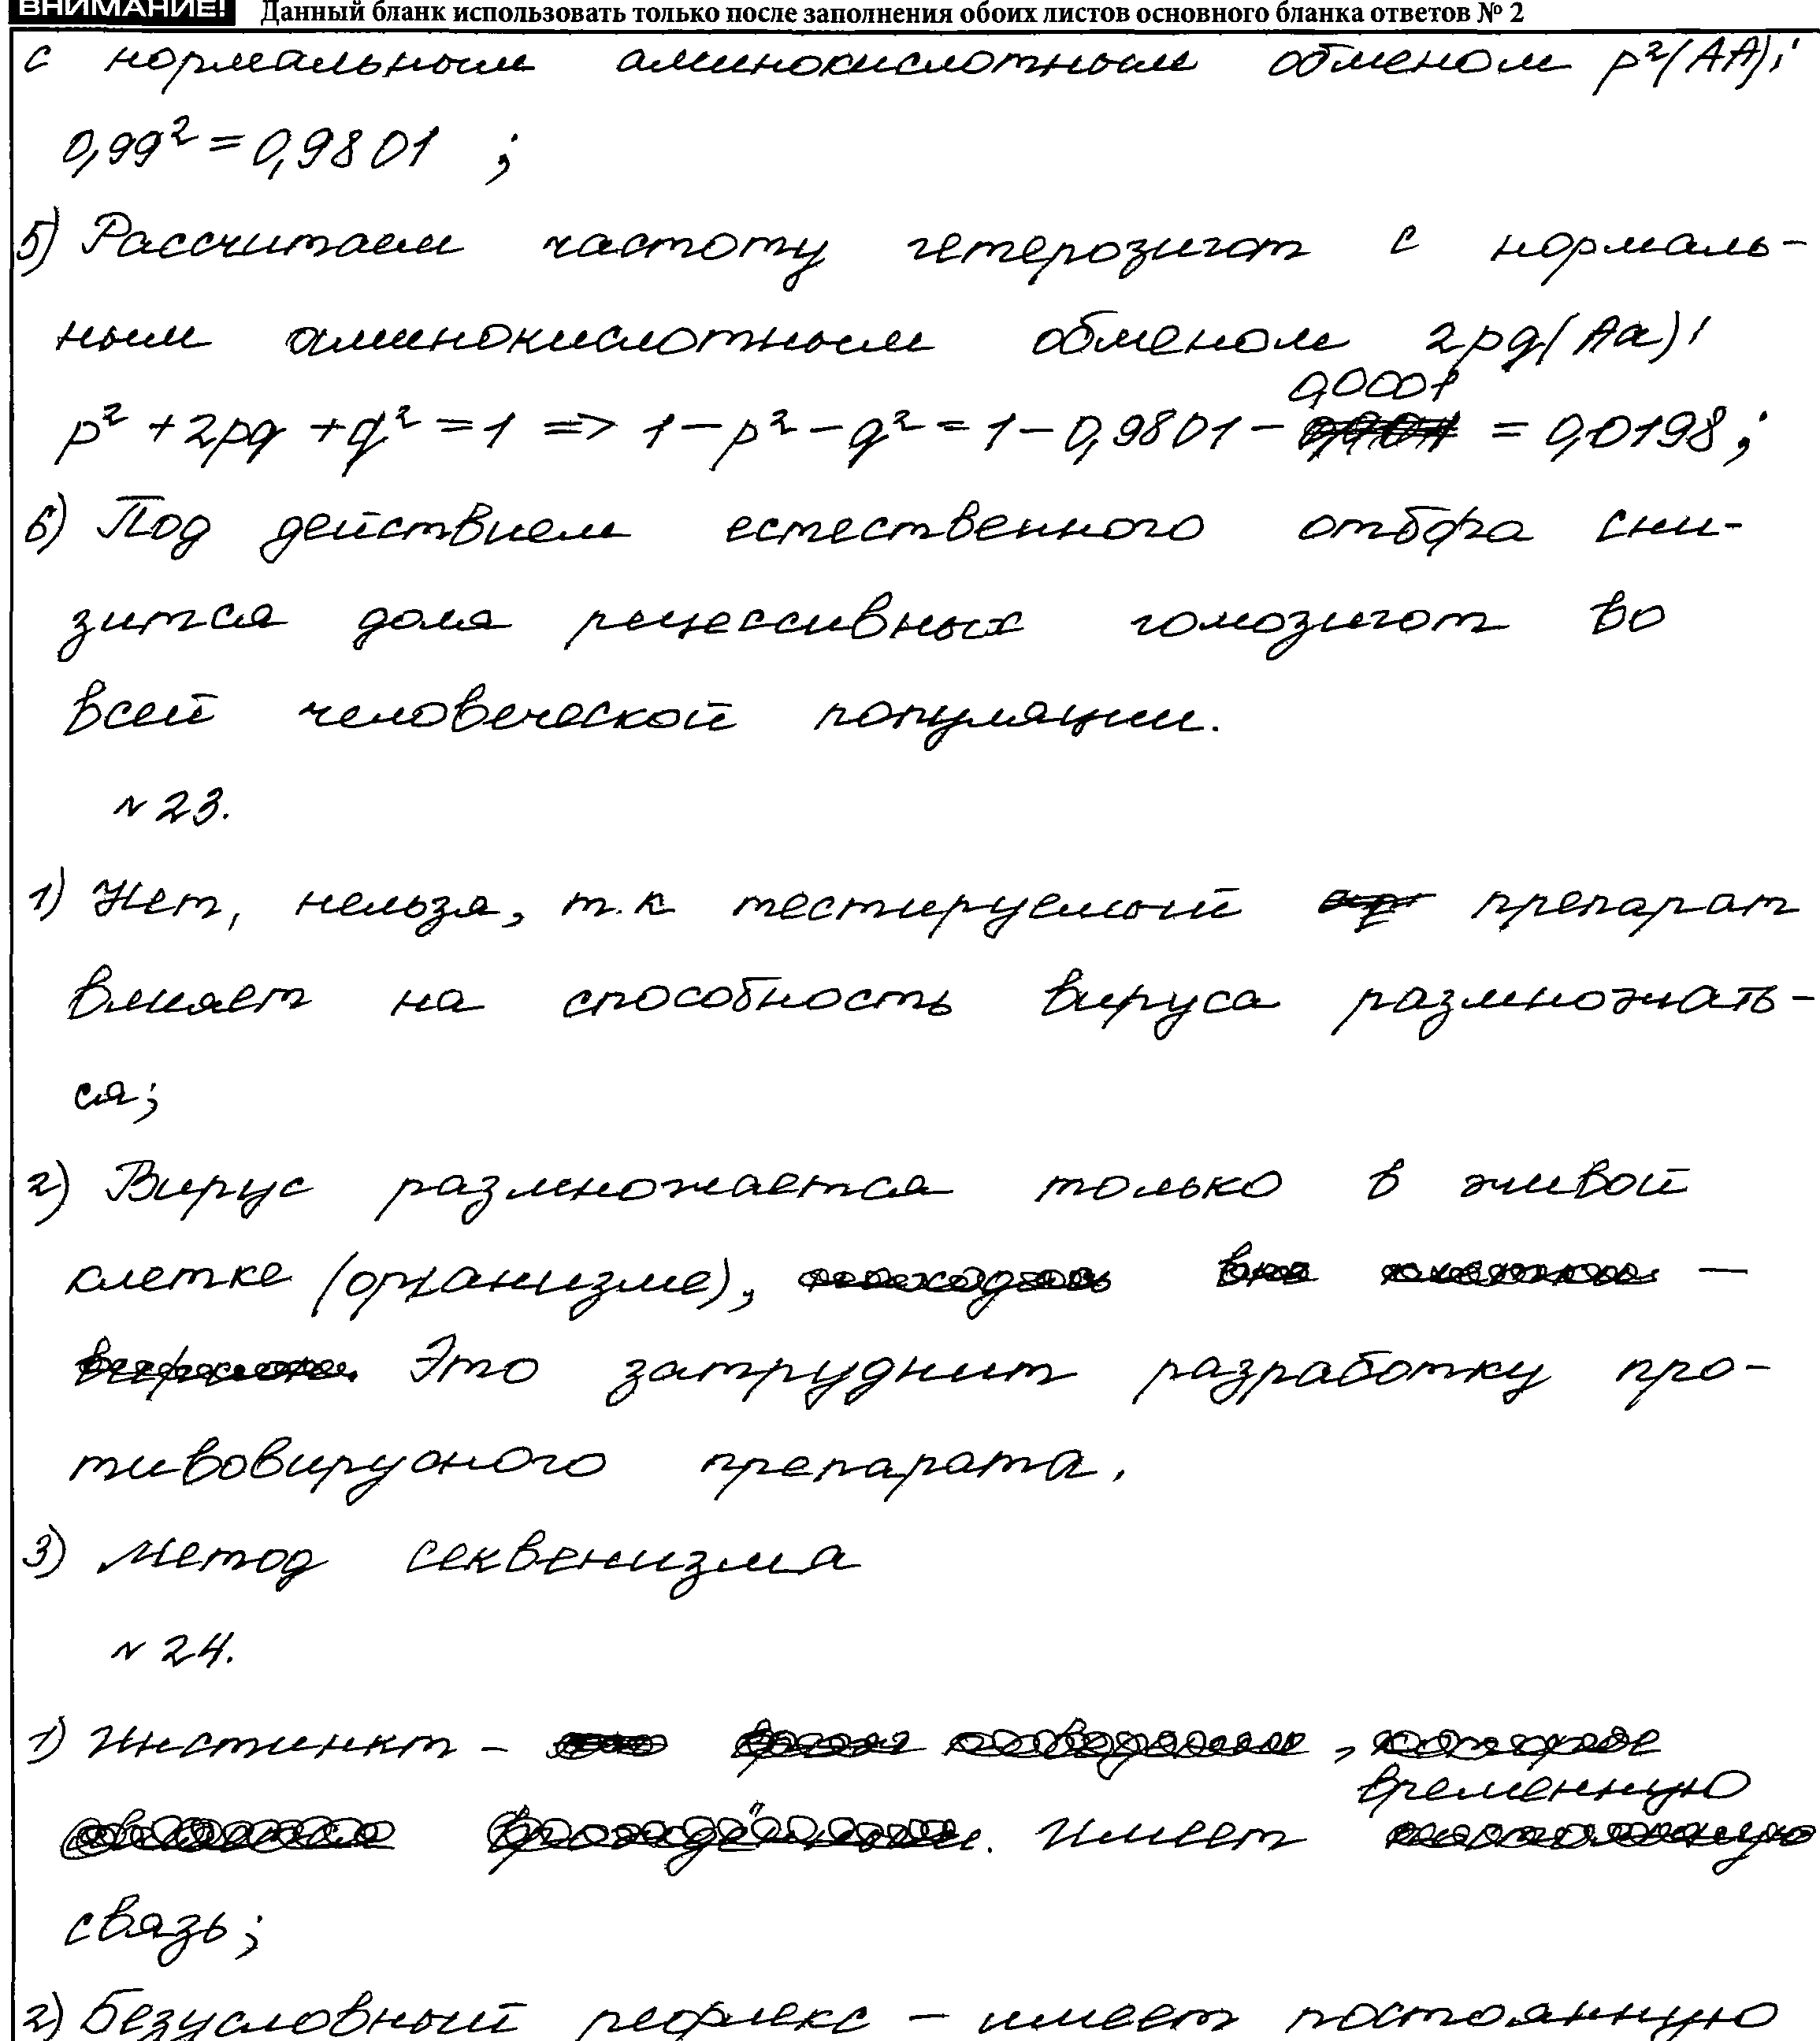 ВНИМАНИЕ! Данный бланк использовать только после заполнения обоих листов основного бланка ответов № 2
с нормальным аминокислотным обменом p²(AA):
0,99² = 0,9801 ;
5) Рассчитаем частоту гетерозигот с нормаль-
ным аминокислотным обменом 2pq(Aa):
0,0001
p² + 2pq + q² = 1 => 1 - p² - q² = 1 - 0,9801 - = 0,0198;
6) Под действием естественного отбора сни-
зится доля рецессивных гомозигот во
всей человеческой популяции.
№ 23.
1) Нет, нельзя, т.к тестируемый препарат
влияет на способность вируса размножать-
ся;
2) Вирус размножается только в живой
клетке (организме), —
Это затруднит разработку про-
тивовирусного препарата.
3) Метод секвенизма
№ 24.
1) Инстинкт - ,
временную
. Имеет
связь;
2) Безусловный рефлекс – имеет постоянную